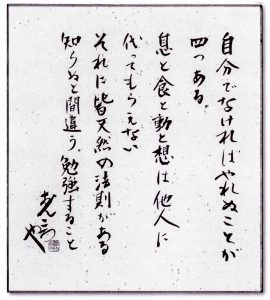 自分でなければやれぬことが
四つある。
息と食と動と想は他人に
代ってもらえない
それに皆天然の法則がある
知らぬと間違う勉強すること
や